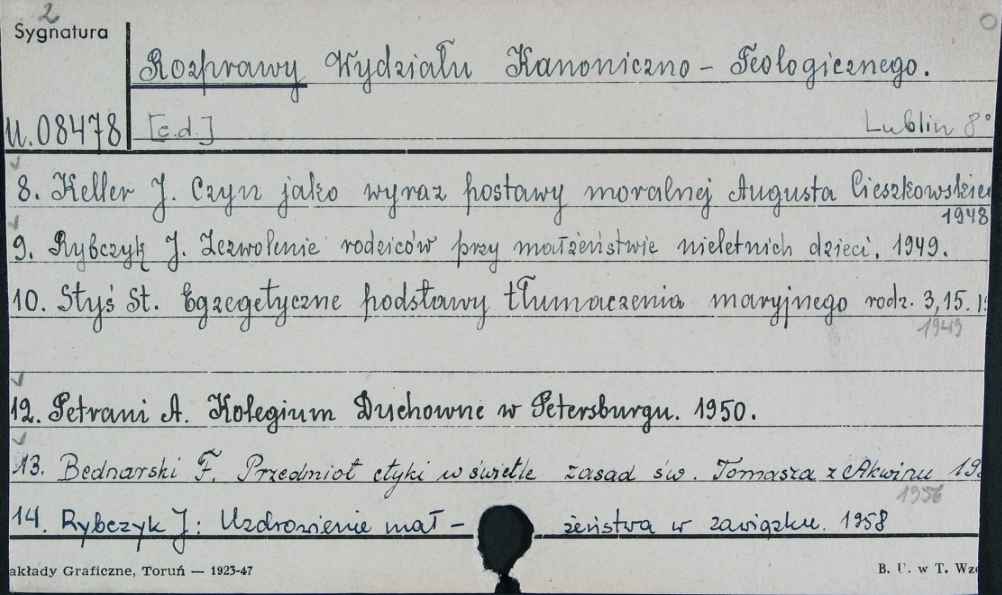 2
Sygnatura
Rozprawy Wydziału Kanoniczno - Teologicznego.
U.08478 [c.d.] Lublin 8°
8. Keller J. Czyn jako wyraz postawy moralnej Augusta Cieszkowskie
1948
9. Rybczyk J. Zezwolenie rodziców przy małżeństwie nieletnich dzieci. 1949.
10. Styś St. Egzegetyczne podstawy tłumaczenia maryjnego rodz. 3,15.
1949
12. Petrani A. Kolegium Duchowne w Petersburgu. 1950.
13. Bednarski F. Przedmiot etyki w świetle zasad św. Tomasza z Akwinu 19
1956
14. Rybczyk J: Uzdrowienie mał- żeństwa w zawiązku. 1958
akłady Graficzne, Toruń — 1923-47 B. U. w T. Wzó